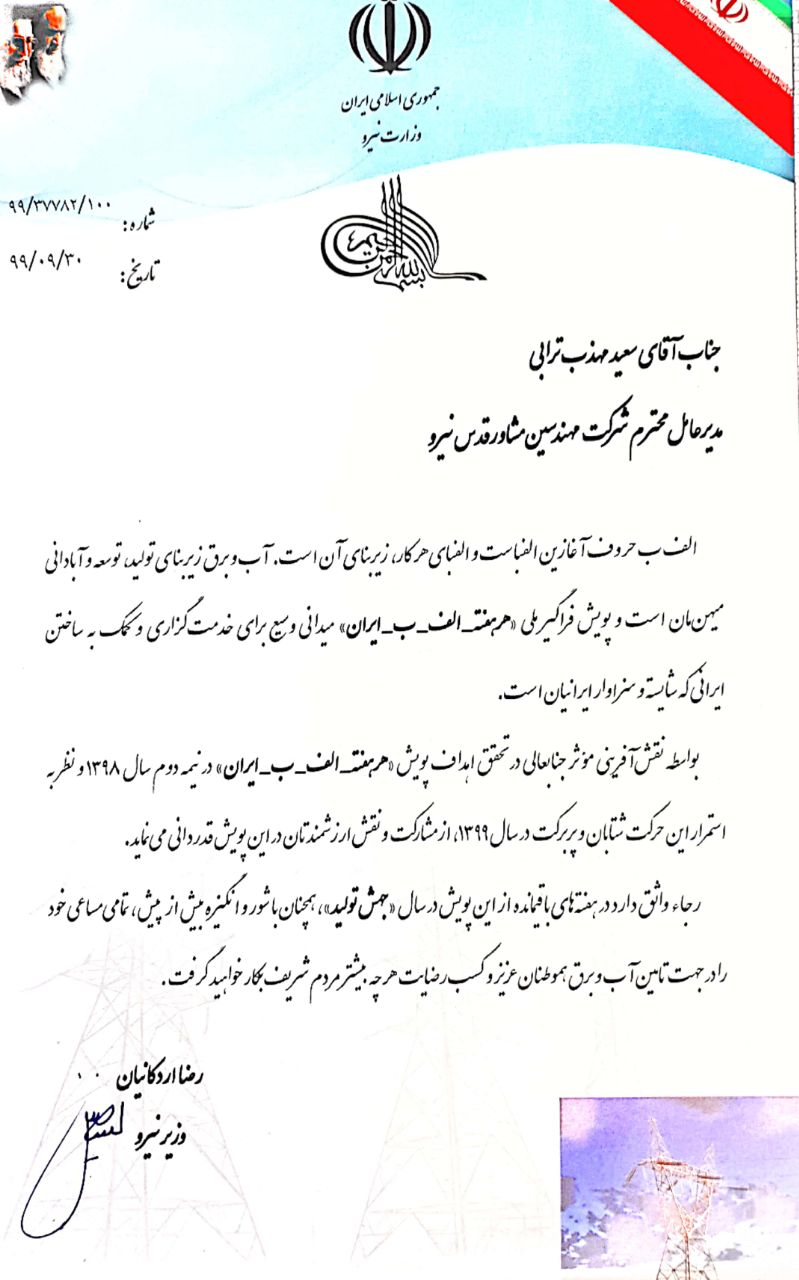 جمهوری اسلامی ایران
وزارت نیرو
شماره: ۹۹/۳۷۷۸۲/۱۰۰
تاریخ: ۹۹/۰۹/۳۰
بسم الله الرحمن الرحیم
جناب آقای سعید مهذب ترابی
مدیرعامل محترم شرکت مهندسین مشاور قدس نیرو
الف ب حروف آغازین الفباست و الفبای هر کار، زیربنای آن است. آب و برق زیربنای تولید، توسعه و آبادانی
میهن‌مان است و پویش فراگیر ملی «هر‌هفته_الف_ب_ایران» میدانی وسیع برای خدمت‌گزاری و کمک به ساختن
ایرانی که شایسته و سزاوار ایرانیان است.
بواسطه نقش‌آفرینی مؤثر جنابعالی در تحقق اهداف پویش «هر‌هفته_الف_ب_ایران» در نیمه دوم سال ۱۳۹۸ و نظر به
استمرار این حرکت شتابان و پربرکت در سال ۱۳۹۹، از مشارکت و نقش ارزشمندتان در این پویش قدردانی می‌نماید.
رجاء واثق دارد در هفته‌های باقیمانده از این پویش در سال «جهش تولید»، همچنان با شور و انگیزه بیش از پیش، تمامی مساعی خود
را در جهت تامین آب و برق هموطنان عزیز و کسب رضایت هر چه بیشتر مردم شریف بکار خواهید گرفت.
رضا اردکانیان
وزیر نیرو